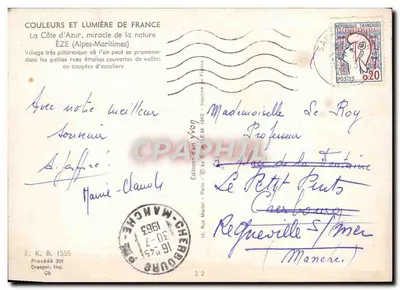 COULEURS ET LUMIÈRE DE FRANCE
La Côte d'Azur, miracle de la nature
ÈZE (Alpes-Maritimes)
Village très pittoresque où l'on peut se promener
dans les petites rues étroites couvertes de voûtes
ou coupées d'escaliers
REPUBLIQUE FRANCAISE
0,20
POSTES
Avec notre meilleur
souvenir
A. Jaffré
Marie-Claude
Mademoiselle Le Roy
Professeur
3 place de la Fontaine
Le Petit Ponts
Cherbourg
Reqneville s/mer
Manche
CHERBOURG-MANCHE
16 H 45
30-7
1963
CPARAMA
Editions d'art Yvon
15, Rue Martel - Paris
Imprimé en France
E. K. B. 1555
Procédé 301
Draeger, Imp.
C6
22